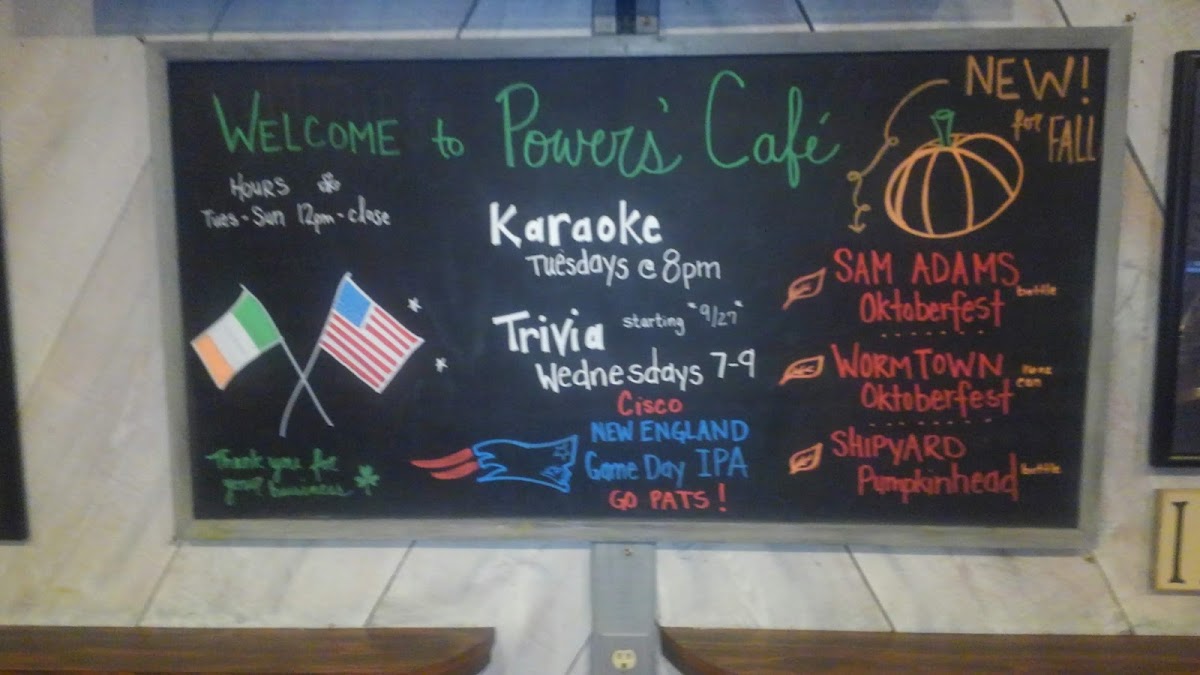 WELCOME to Powers' Café
HOURS
Tues - Sun 12pm - close
Karaoke
Tuesdays @ 8pm
Trivia starting "9/27"
Wednesdays 7-9
Cisco
NEW ENGLAND
Game Day IPA
GO PATS!
Thank you for
your business
NEW!
for FALL
SAM ADAMS
Oktoberfest bottle
WORMTOWN
Oktoberfest can
SHIPYARD
Pumpkinhead bottle
I